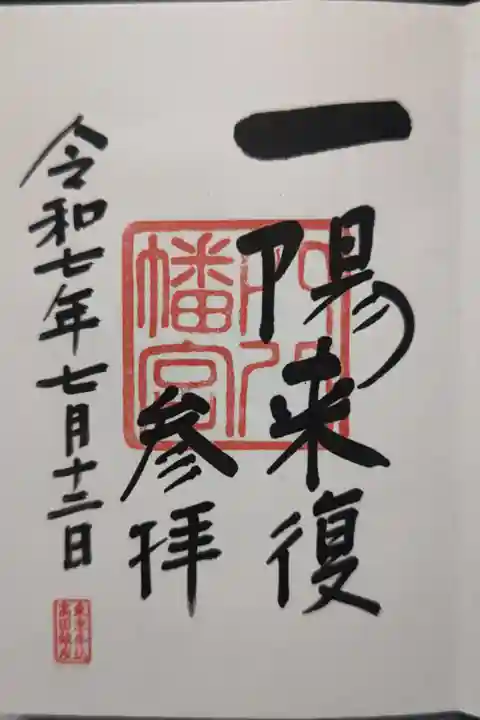 一陽来復
参拝
令和七年七月十二日
八幡宮